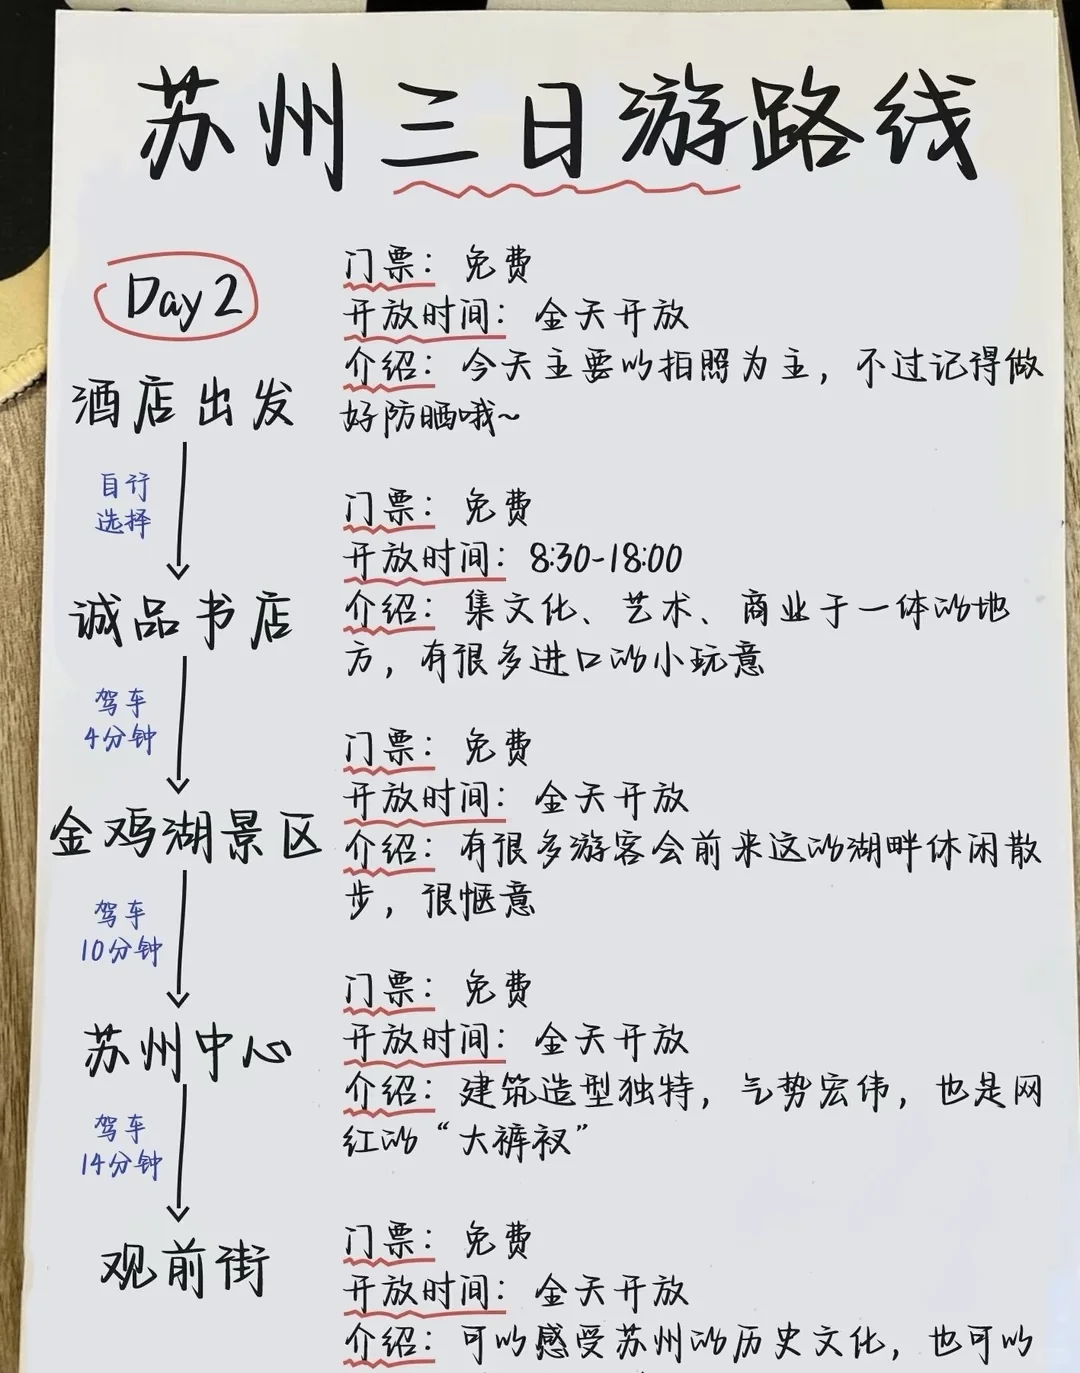 苏州三日游路线
Day 2
酒店出发
门票：免费
开放时间：全天开放
介绍：今天主要以拍照为主，不过记得做
好防晒哦~
自行
选择
诚品书店
门票：免费
开放时间：8:30-18:00
介绍：集文化、艺术、商业于一体的地
方，有很多进口的小玩意
驾车
4分钟
金鸡湖景区
门票：免费
开放时间：全天开放
介绍：有很多游客会前来这的湖畔休闲散
步，很惬意
驾车
10分钟
苏州中心
门票：免费
开放时间：全天开放
介绍：建筑造型独特，气势宏伟，也是网
红的“大裤衩”
驾车
14分钟
观前街
门票：免费
开放时间：全天开放
介绍：可以感受苏州的历史文化，也可以